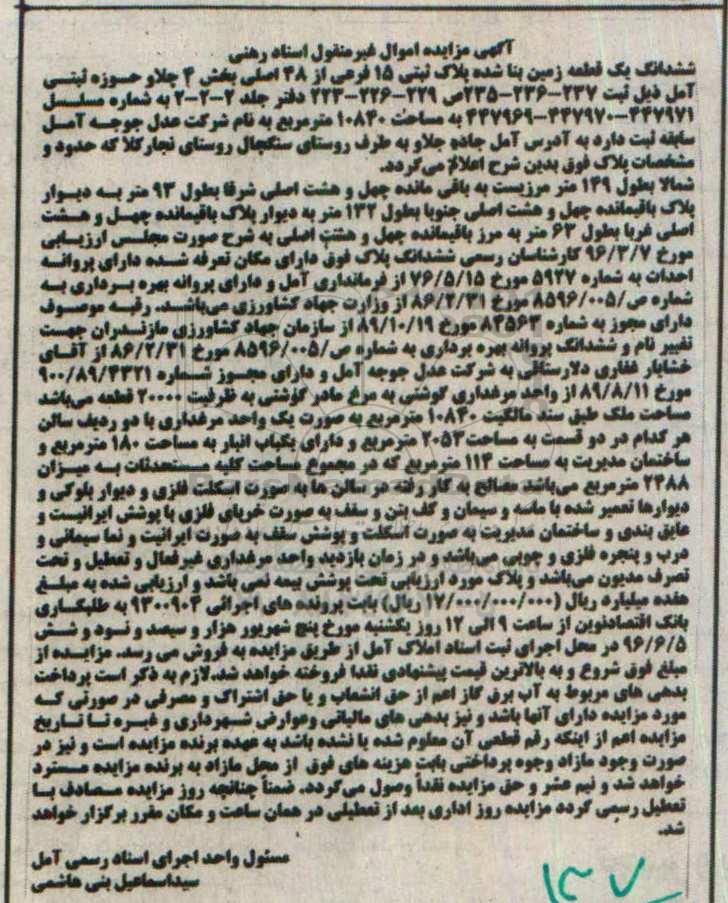 آگهی مزایده اموال غیرمنقول اسناد رهنی
ششدانگ یک قطعه زمین بنا شده پلاک ثبتی ۱۵ فرعی از ۴۸ اصلی بخش ۴ چلاو حوزه ثبتی
آمل ذیل ثبت ۲۳۷-۲۳۶-۲۳۵ص ۲۲۹-۲۲۶-۲۲۳ دفتر جلد ۲-۲-۲ به شماره مسلسل
۴۴۷۹۷۱-۴۴۷۹۷۰-۴۴۷۹۶۹ به مساحت ۱۰۸۴۰ مترمربع به نام شرکت عدل جوجه آمل
سابقه ثبت دارد به آدرس آمل جاده چلاو به طرف روستای سنگچال روستای نجارکلا که حدود و
مشخصات پلاک فوق بدین شرح اعلام می‌گردد.
شمالا بطول ۱۴۹ متر مرزیست به باقی مانده چهل و هشت اصلی شرقا بطول ۹۳ متر به دیوار
پلاک باقیمانده چهل و هشت اصلی جنوبا بطول ۱۳۲ متر به دیوار پلاک باقیمانده چهل و هشت
اصلی غربا بطول ۶۳ متر به مرز باقیمانده چهل و هشت اصلی به شرح صورت مجلس ارزیابی
مورخ ۹۶/۳/۷ کارشناسان رسمی ششدانگ پلاک فوق دارای مکان تعرفه شده دارای پروانه
احداث به شماره ۵۹۲۷ مورخ ۷۶/۵/۱۵ از فرمانداری آمل و دارای پروانه بهره برداری به
شماره ص/۸۵۹۶/۰۰۵ مورخ ۸۶/۲/۳۱ از وزارت جهاد کشاورزی می‌باشد. رقبه موصوف
دارای مجوز به شماره ۸۴۵۶۳ مورخ ۸۹/۱۰/۱۹ از سازمان جهاد کشاورزی مازندران جهت
تغییر نام و ششدانگ پروانه بهره برداری به شماره ص/۸۵۹۶/۰۰۵ مورخ ۸۶/۲/۳۱ از آقای
خشایار غفاری دلارستاقی به شرکت عدل جوجه آمل و دارای مجوز شماره ۹۰۰/۸۹/۴۳۲۱
مورخ ۸۹/۸/۱۱ از واحد مرغداری گوشتی به مرغ مادر گوشتی به ظرفیت ۲۰۰۰۰ قطعه می‌باشد
مساحت ملک طبق سند مالکیت ۱۰۸۴۰ مترمربع به صورت یک واحد مرغداری با دو ردیف سالن
هر کدام در دو قسمت به مساحت ۲۰۵۳ مترمربع و دارای یکباب انبار به مساحت ۱۸۰ مترمربع و
ساختمان مدیریت به مساحت ۱۱۴ مترمربع که در مجموع مساحت کلیه مستحدثات به میزان
۲۳۸۸ مترمربع می‌باشد مصالح به کار رفته در سالن ها به صورت اسکلت فلزی و دیوار بلوکی و
دیوارها تعمیر شده با ماسه و سیمان و کف بتن و سقف به صورت خرپای فلزی با پوشش ایرانیت و
عایق بندی و ساختمان مدیریت به صورت اسکلت و پوشش سقف به صورت ایرانیت و نما سیمانی و
درب و پنجره فلزی و چوبی می‌باشد و در زمان بازدید واحد مرغداری غیرفعال و تعطیل و تحت
تصرف مدیون می‌باشد و پلاک مورد ارزیابی تحت پوشش بیمه نمی باشد و ارزیابی شده به مبلغ
هفده میلیارد ریال (۱۷/۰۰۰/۰۰۰/۰۰۰ ریال) بابت پرونده های اجرائی ۹۳۰۰۹۰۴ به طلبکاری
بانک اقتصادنوین از ساعت ۹ الی ۱۲ روز یکشنبه مورخ پنج شهریور هزار و سیصد و نود و شش
۹۶/۶/۵ در محل اجرای ثبت اسناد املاک آمل از طریق مزایده به فروش می رسد. مزایده از
مبلغ فوق شروع و به بالاترین قیمت پیشنهادی نقدا فروخته خواهد شد.لازم به ذکر است پرداخت
بدهی های مربوط به آب برق گاز اعم از حق انشعاب و یا حق اشتراک و مصرفی در صورتی که
مورد مزایده دارای آنها باشد و نیز بدهی های مالیاتی وعوارض شهرداری و غیره تا تاریخ
مزایده اعم از اینکه رقم قطعی آن معلوم شده یا نشده باشد به عهده برنده مزایده است و نیز در
صورت وجود مازاد وجوه پرداختی بابت هزینه های فوق از محل مازاد به برنده مزایده مسترد
خواهد شد و نیم عشر و حق مزایده نقداً وصول می‌گردد. ضمناً چنانچه روز مزایده مصادف با
تعطیل رسمی گردد مزایده روز اداری بعد از تعطیلی در همان ساعت و مکان مقرر برگزار خواهد
شد.
مسئول واحد اجرای اسناد رسمی آمل
سیداسماعیل بنی هاشمی